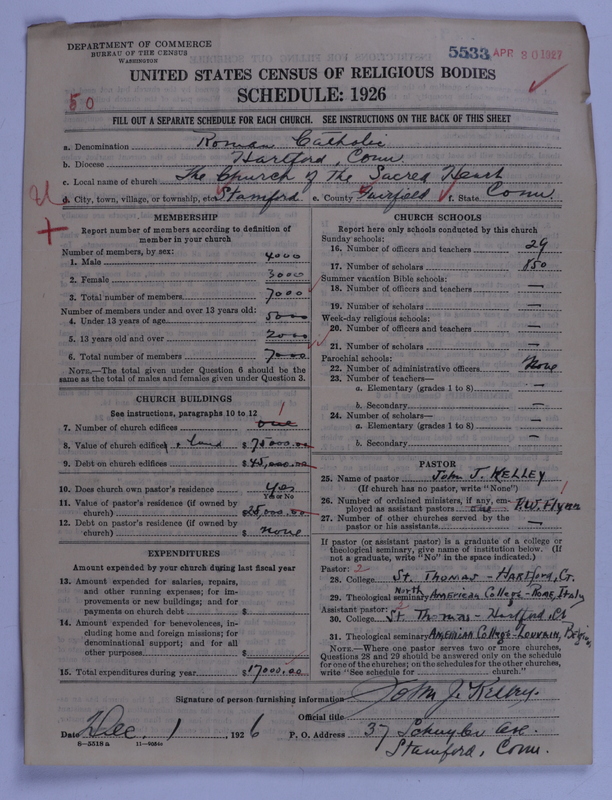 DEPARTMENT OF COMMERCE
BUREAU OF THE CENSUS
WASHINGTON
5533 APR 30 1927
UNITED STATES CENSUS OF RELIGIOUS BODIES
50
SCHEDULE: 1926
FILL OUT A SEPARATE SCHEDULE FOR EACH CHURCH. SEE INSTRUCTIONS ON THE BACK OF THIS SHEET
a. Denomination Roman Catholic
b. Diocese Hartford, Conn.
c. Local name of church The Church of the Sacred Heart
d. City, town, village, or township, etc. Stamford e. County Fairfield f. State Conn.
MEMBERSHIP
Report number of members according to definition of
member in your church
Number of members, by sex:
1. Male 4000
2. Female 3000
3. Total number of members 7000
Number of members under and over 13 years old:
4. Under 13 years of age 5000
5. 13 years old and over 2000
6. Total number of members 7000
NOTE.—The total given under Question 6 should be the
same as the total of males and females given under Question 3.
CHURCH BUILDINGS
See instructions, paragraphs 10 to 12
7. Number of church edifices one 1
8. Value of church edifices + land $ 75000.00
9. Debt on church edifices $ 45,000.00
10. Does church own pastor's residence yes
Yes or No
11. Value of pastor's residence (if owned by
church) $ 25,000.00
12. Debt on pastor's residence (if owned by
church) $ none
EXPENDITURES
Amount expended by your church during last fiscal year
13. Amount expended for salaries, repairs,
and other running expenses; for im-
provements or new buildings; and for
payments on church debt $
14. Amount expended for benevolences, in-
cluding home and foreign missions; for
denominational support; and for all
other purposes $
15. Total expenditures during year $ 17000.00
CHURCH SCHOOLS
Report here only schools conducted by this church
Sunday schools:
16. Number of officers and teachers 29
17. Number of scholars 850
Summer vacation Bible schools:
18. Number of officers and teachers —
19. Number of scholars —
Week-day religious schools:
20. Number of officers and teachers —
21. Number of scholars —
Parochial schools:
22. Number of administrative officers None
23. Number of teachers—
a. Elementary (grades 1 to 8) —
b. Secondary —
24. Number of scholars—
a. Elementary (grades 1 to 8) —
b. Secondary —
PASTOR
25. Name of pastor John J. KELLEY
(If church has no pastor, write "None")
26. Number of ordained ministers, if any, em-
ployed as assistant pastors one F.W. Flynn 1
27. Number of other churches served by the
pastor or his assistants —
If pastor (or assistant pastor) is a graduate of a college or
theological seminary, give name of institution below. (If
not a graduate, write "No" in the space indicated.)
Pastor: 2
28. College St. Thomas - HARTFORD, CT.
29. Theological seminary North American College - Rome, Italy
Assistant pastor: 2
30. College St. Thomas - Hartford, Ct
31. Theological seminary AMERICAN College - LOUVAIN, Belgium
NOTE.—Where one pastor serves two or more churches,
Questions 28 and 29 should be answered only on the schedule
for one of the churches; on the schedules for the other churches,
write "See schedule for church."
Signature of person furnishing information John J. Kelley.
Official title
Date Dec. 1, 1926 P. O. Address 37 Schuyler Ave.
Stamford, Conn.
8—5518 a 11—9056